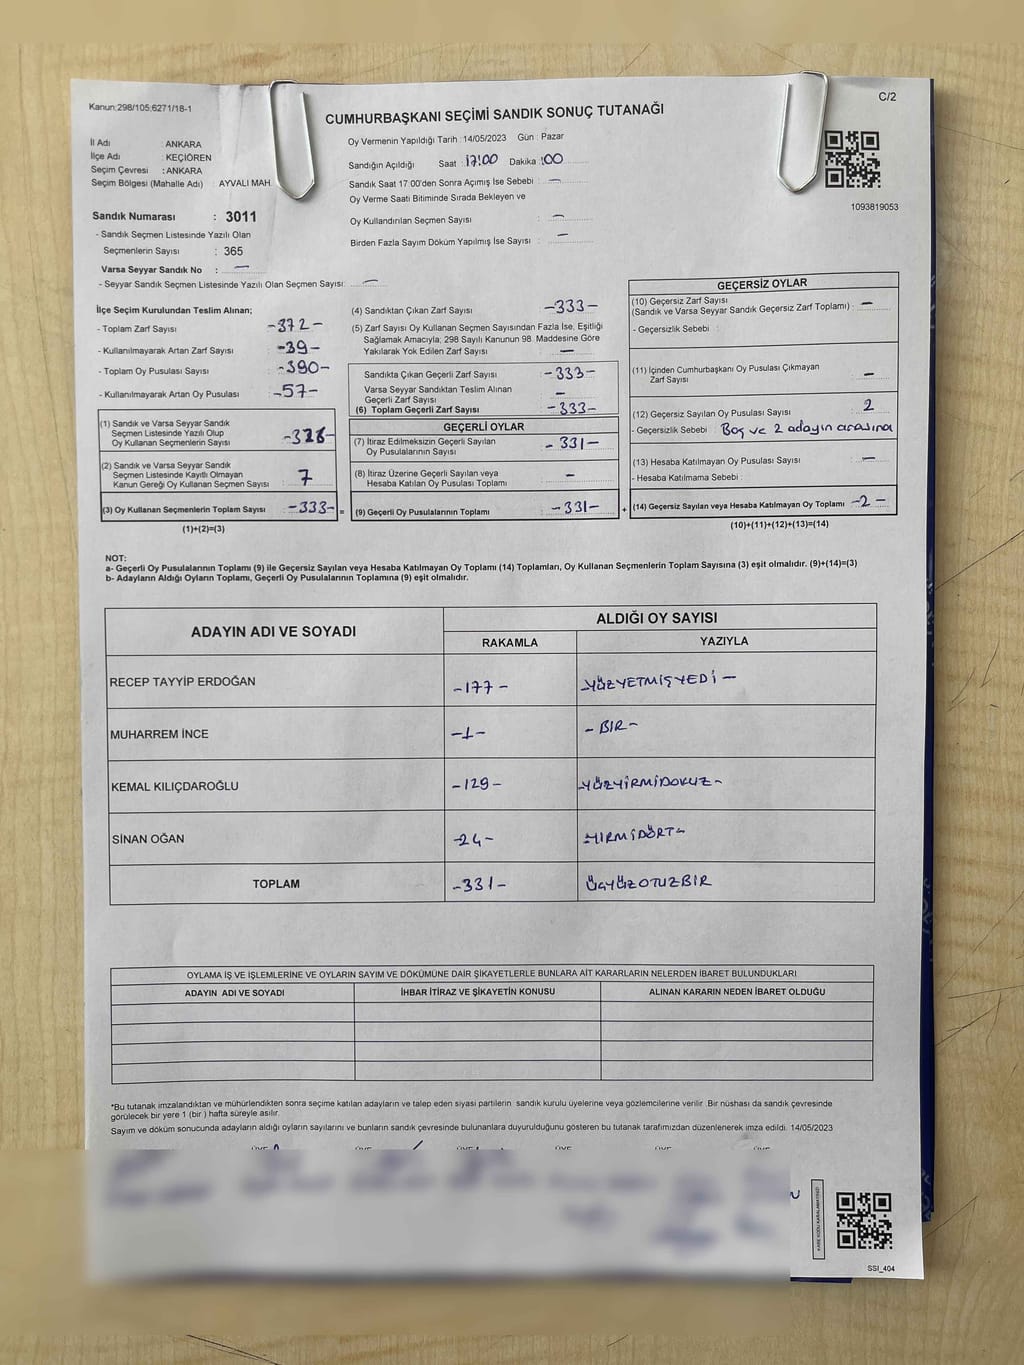 Kanun:298/105;6271/18-1
C/2
CUMHURBAŞKANI SEÇİMİ SANDIK SONUÇ TUTANAĞI
İl Adı : ANKARA
İlçe Adı : KEÇİÖREN
Seçim Çevresi : ANKARA
Seçim Bölgesi (Mahalle Adı) : AYVALI MAH.
Sandık Numarası : 3011
- Sandık Seçmen Listesinde Yazılı Olan
Seçmenlerin Sayısı : 365
Varsa Seyyar Sandık No : —
- Seyyar Sandık Seçmen Listesinde Yazılı Olan Seçmen Sayısı: —
Oy Vermenin Yapıldığı Tarih : 14/05/2023 Gün : Pazar
Sandığın Açıldığı Saat : 17:00 Dakika :00
Sandık Saat 17:00'den Sonra Açımış İse Sebebi : —
Oy Verme Saati Bitiminde Sırada Bekleyen ve
Oy Kullandırılan Seçmen Sayısı : —
Birden Fazla Sayım Döküm Yapılmış İse Sayısı : —
1093819053
İlçe Seçim Kurulundan Teslim Alınan;
- Toplam Zarf Sayısı : -372-
- Kullanılmayarak Artan Zarf Sayısı : -39-
- Toplam Oy Pusulası Sayısı : -390-
- Kullanılmayarak Artan Oy Pusulası : -57-
(1) Sandık ve Varsa Seyyar Sandık
Seçmen Listesinde Yazılı Olup
Oy Kullanan Seçmenlerin Sayısı : -326-
(2) Sandık ve Varsa Seyyar Sandık
Seçmen Listesinde Kayıtlı Olmayan
Kanun Gereği Oy Kullanan Seçmen Sayısı : 7
(3) Oy Kullanan Seçmenlerin Toplam Sayısı -333- =
(1)+(2)=(3)
(4) Sandıktan Çıkan Zarf Sayısı : -333-
(5) Zarf Sayısı Oy Kullanan Seçmen Sayısından Fazla İse, Eşitliği
Sağlamak Amacıyla; 298 Sayılı Kanunun 98. Maddesine Göre
Yakılarak Yok Edilen Zarf Sayısı : —
Sandıkta Çıkan Geçerli Zarf Sayısı : -333-
Varsa Seyyar Sandıktan Teslim Alınan
Geçerli Zarf Sayısı : —
(6) Toplam Geçerli Zarf Sayısı : -333-
GEÇERLİ OYLAR
(7) İtiraz Edilmeksizin Geçerli Sayılan
Oy Pusulalarının Sayısı : -331-
(8) İtiraz Üzerine Geçerli Sayılan veya
Hesaba Katılan Oy Pusulası Toplamı : —
(9) Geçerli Oy Pusulalarının Toplamı : -331- +
GEÇERSİZ OYLAR
(10) Geçersiz Zarf Sayısı
(Sandık ve Varsa Seyyar Sandık Geçersiz Zarf Toplamı) : —
- Geçersizlik Sebebi :
(11) İçinden Cumhurbaşkanı Oy Pusulası Çıkmayan
Zarf Sayısı : —
(12) Geçersiz Sayılan Oy Pusulası Sayısı : 2
- Geçersizlik Sebebi : Boş ve 2 adayın arasına
(13) Hesaba Katılmayan Oy Pusulası Sayısı : —
- Hesaba Katılmama Sebebi :
(14) Geçersiz Sayılan veya Hesaba Katılmayan Oy Toplamı -2-
(10)+(11)+(12)+(13)=(14)
NOT:
a- Geçerli Oy Pusulalarının Toplamı (9) ile Geçersiz Sayılan veya Hesaba Katılmayan Oy Toplamı (14) Toplamları, Oy Kullanan Seçmenlerin Toplam Sayısına (3) eşit olmalıdır. (9)+(14)=(3)
b- Adayların Aldığı Oyların Toplamı, Geçerli Oy Pusulalarının Toplamına (9) eşit olmalıdır.
ADAYIN ADI VE SOYADI ALDIĞI OY SAYISI
RAKAMLA YAZIYLA
RECEP TAYYİP ERDOĞAN -177- -YÜZYETMİŞYEDİ-
MUHARREM İNCE -1- -BİR-
KEMAL KILIÇDAROĞLU -129- -YÜZYİRMİDOKUZ-
SİNAN OĞAN -24- -YİRMİDÖRT-
TOPLAM -331- ÜÇYÜZOTUZBİR
OYLAMA İŞ VE İŞLEMLERİNE VE OYLARIN SAYIM VE DÖKÜMÜNE DAİR ŞİKAYETLERLE BUNLARA AİT KARARLARIN NELERDEN İBARET BULUNDUKLARI
ADAYIN ADI VE SOYADI İHBAR İTİRAZ VE ŞİKAYETİN KONUSU ALINAN KARARIN NEDEN İBARET OLDUĞU
*Bu tutanak imzalandıktan ve mühürlendikten sonra seçime katılan adayların ve talep eden siyasi partilerin sandık kurulu üyelerine veya gözlemcilerine verilir. Bir nüshası da sandık çevresinde
görülecek bir yere 1 (bir ) hafta süreyle asılır.
Sayım ve döküm sonucunda adayların aldığı oyların sayılarını ve bunların sandık çevresinde bulunanlara duyurulduğunu gösteren bu tutanak tarafımızdan düzenlenerek imza edildi. 14/05/2023
KARE KODU KARALAMAYINIZ!
SSI_404